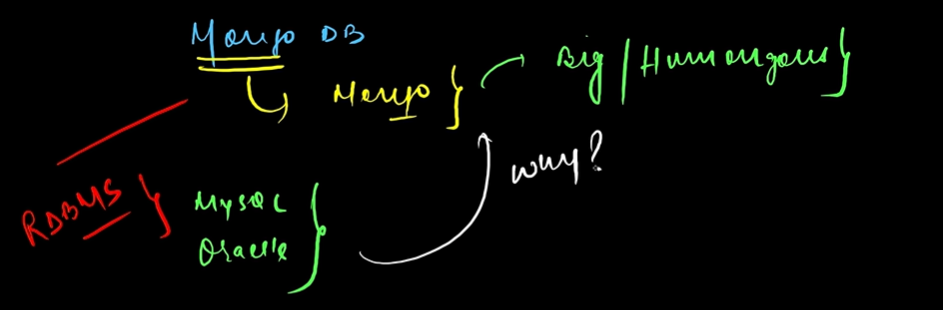 MongoDB
Mongo
Big / Humongous
why?
RDBMS
MySQL
Oracle